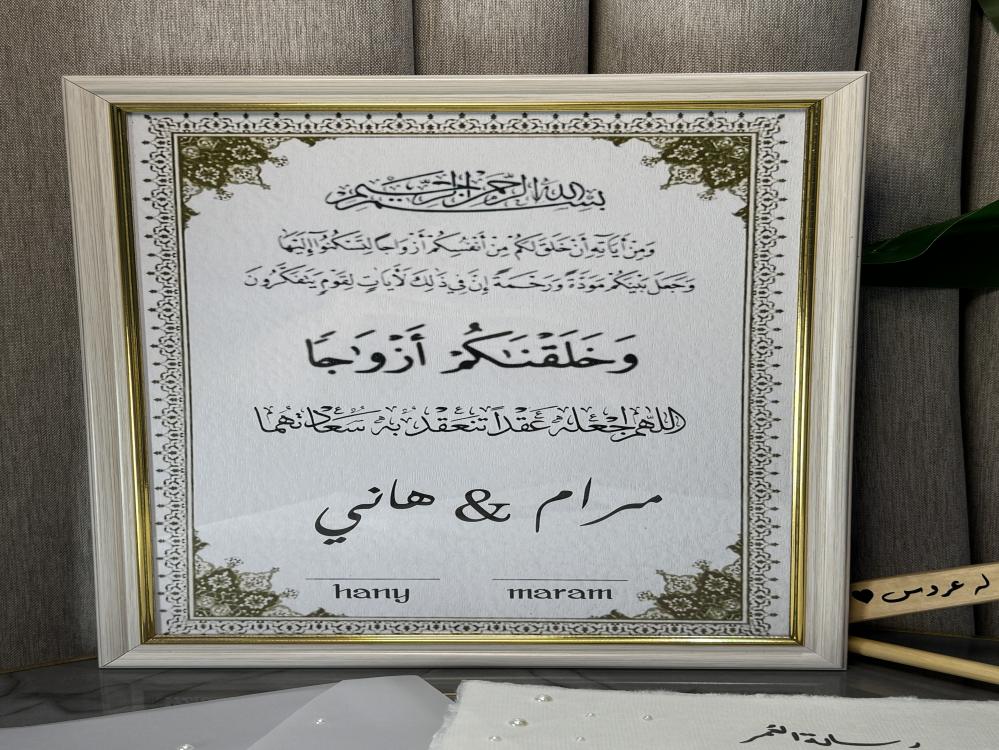 بسم الله الرحمن الرحيم
وَمِنْ آيَاتِهِ أَنْ خَلَقَ لَكُمْ مِنْ أَنْفُسِكُمْ أَزْوَاجًا لِتَسْكُنُوا إِلَيْهَا
وَجَعَلَ بَيْنَكُمْ مَوَدَّةً وَرَحْمَةً إِنَّ فِي ذَلِكَ لَآيَاتٍ لِقَوْمٍ يَتَفَكَّرُونَ
وَخَلَقْنَاكُمْ أَزْوَاجًا
اللهم اجعله عقداً تنعقد به سعادتهما
مرام & هاني
hany maram
له عروس
رسالة العمر